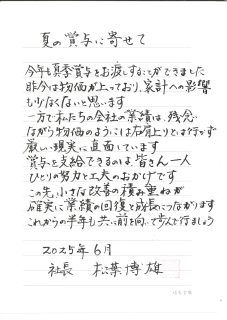 夏の賞与に寄せて
今年も夏季賞与をお渡しすることができました
昨今は物価が上っており、家計への影響
も少なくないと思います
一方で私たちの会社の業績は、残念
ながら物価のようには右肩上りとは行かず
厳しい現実に直面しています
賞与を支給できるのは、皆さん一人
ひとりの努力と工夫のおかげです
この先、小さな改善の積み重ねが
確実に業績の回復と成長につながります
これからの半年も共に前を向いて歩んで行きましょう
2025年6月
社長 松葉博雄